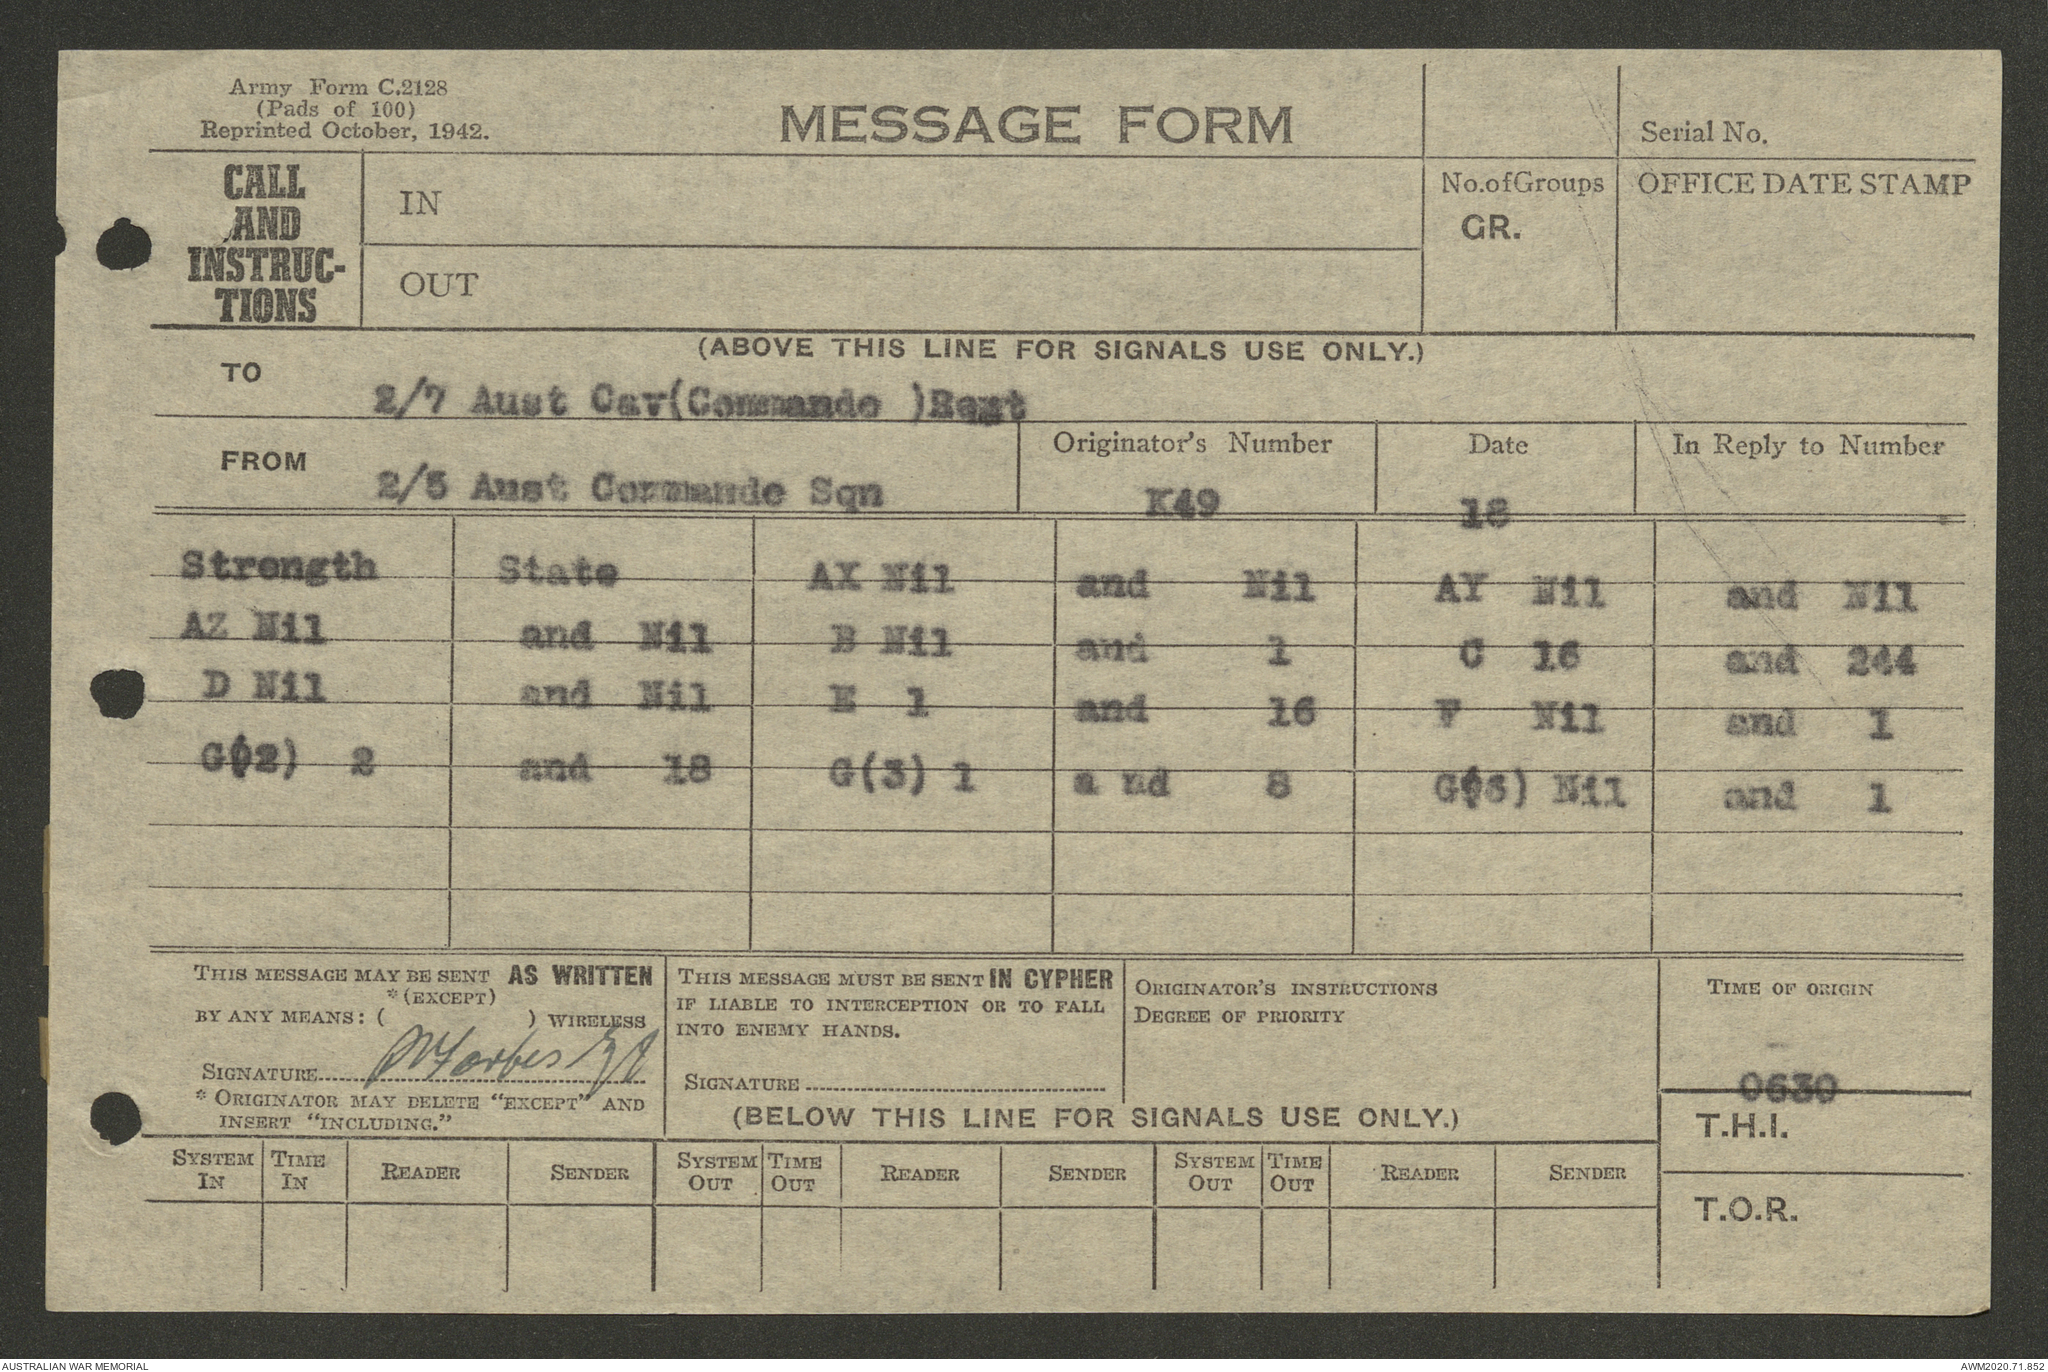 Army Form C.2128
(Pads of 100)
Reprinted October, 1942.
MESSAGE FORM
Serial No.
CALL AND INSTRUC-TIONS
IN
OUT
No. of Groups
GR.
OFFICE DATE STAMP
(ABOVE THIS LINE FOR SIGNALS USE ONLY.)
TO 2/7 Aust Cav(Commando )Regt
FROM 2/5 Aust Commando Sqn
Originator's Number K49
Date 18
In Reply to Number
Strength State AX Nil and Nil AY Nil and Nil
AZ Nil and Nil B Nil and 1 C 16 and 244
D Nil and Nil E 1 and 16 F Nil and 1
G(2) 2 and 18 G(3) 1 a nd 8 G(6) Nil and 1
THIS MESSAGE MAY BE SENT AS WRITTEN
*(EXCEPT)
BY ANY MEANS: ( ) WIRELESS
SIGNATURE Forbes
* ORIGINATOR MAY DELETE "EXCEPT" AND
INSERT "INCLUDING."
THIS MESSAGE MUST BE SENT IN CYPHER
IF LIABLE TO INTERCEPTION OR TO FALL
INTO ENEMY HANDS.
SIGNATURE
ORIGINATOR'S INSTRUCTIONS
DEGREE OF PRIORITY
TIME OF ORIGIN
0630
(BELOW THIS LINE FOR SIGNALS USE ONLY.)
T.H.I.
T.O.R.
SYSTEM IN TIME IN READER SENDER SYSTEM OUT TIME OUT READER SENDER SYSTEM OUT TIME OUT READER SENDER
AUSTRALIAN WAR MEMORIAL
AWM2020.71.852